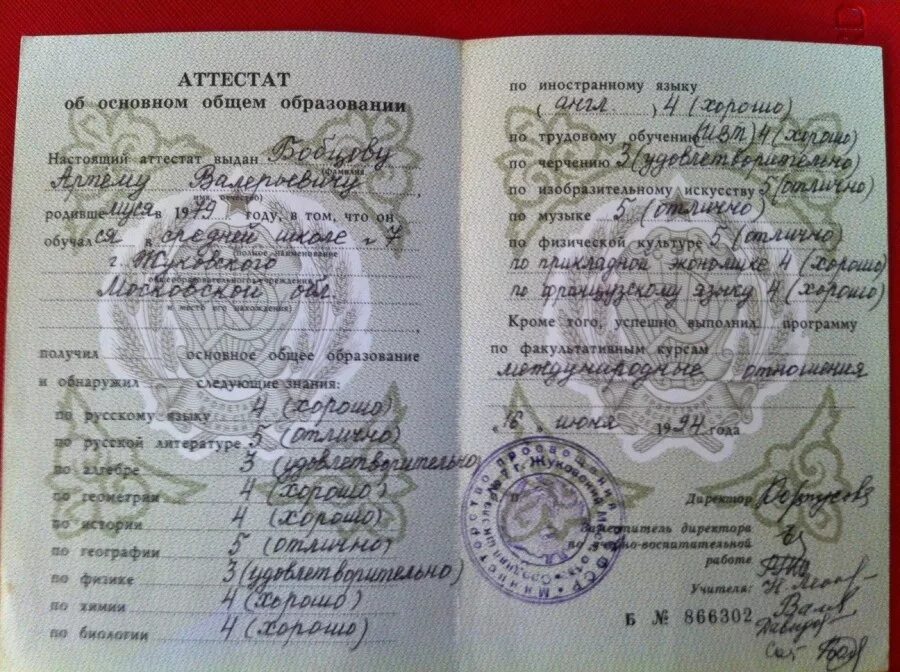 АТТЕСТАТ
об основном общем образовании
Настоящий аттестат выдан Бобцову
(фамилия
Артёму Валерьевичу,
имя, отчество)
родившемуся в 1979 году, в том, что он
обучался в средней школе № 7
(полное наименование
г. Жуковского
общеобразовательного учреждения
Московской обл.
и место его нахождения)
получил основное общее образование
и обнаружил следующие знания:
по русскому языку 4 (хорошо)
по русской литературе 5 (отлично)
по алгебре 3 (удовлетворительно)
по геометрии 4 (хорошо)
по истории 4 (хорошо)
по географии 5 (отлично)
по физике 3 (удовлетворительно)
по химии 4 (хорошо)
по биологии 4 (хорошо)
по иностранному языку
( англ. ) 4 (хорошо)
по трудовому обучению (ИВТ) 4 (хорошо)
по черчению 3 (удовлетворительно)
по изобразительному искусству 5 (отлично)
по музыке 5 (отлично)
по физической культуре 5 (отлично)
по прикладной экономике 4 (хорошо)
по французскому языку 4 (хорошо)
Кроме того, успешно выполнил программу
по факультативным курсам
международные отношения
« 16 » июня 1994 года
Директор
Заместитель директора
по учебно-воспитательной
работе
Учителя:
Б № 866302